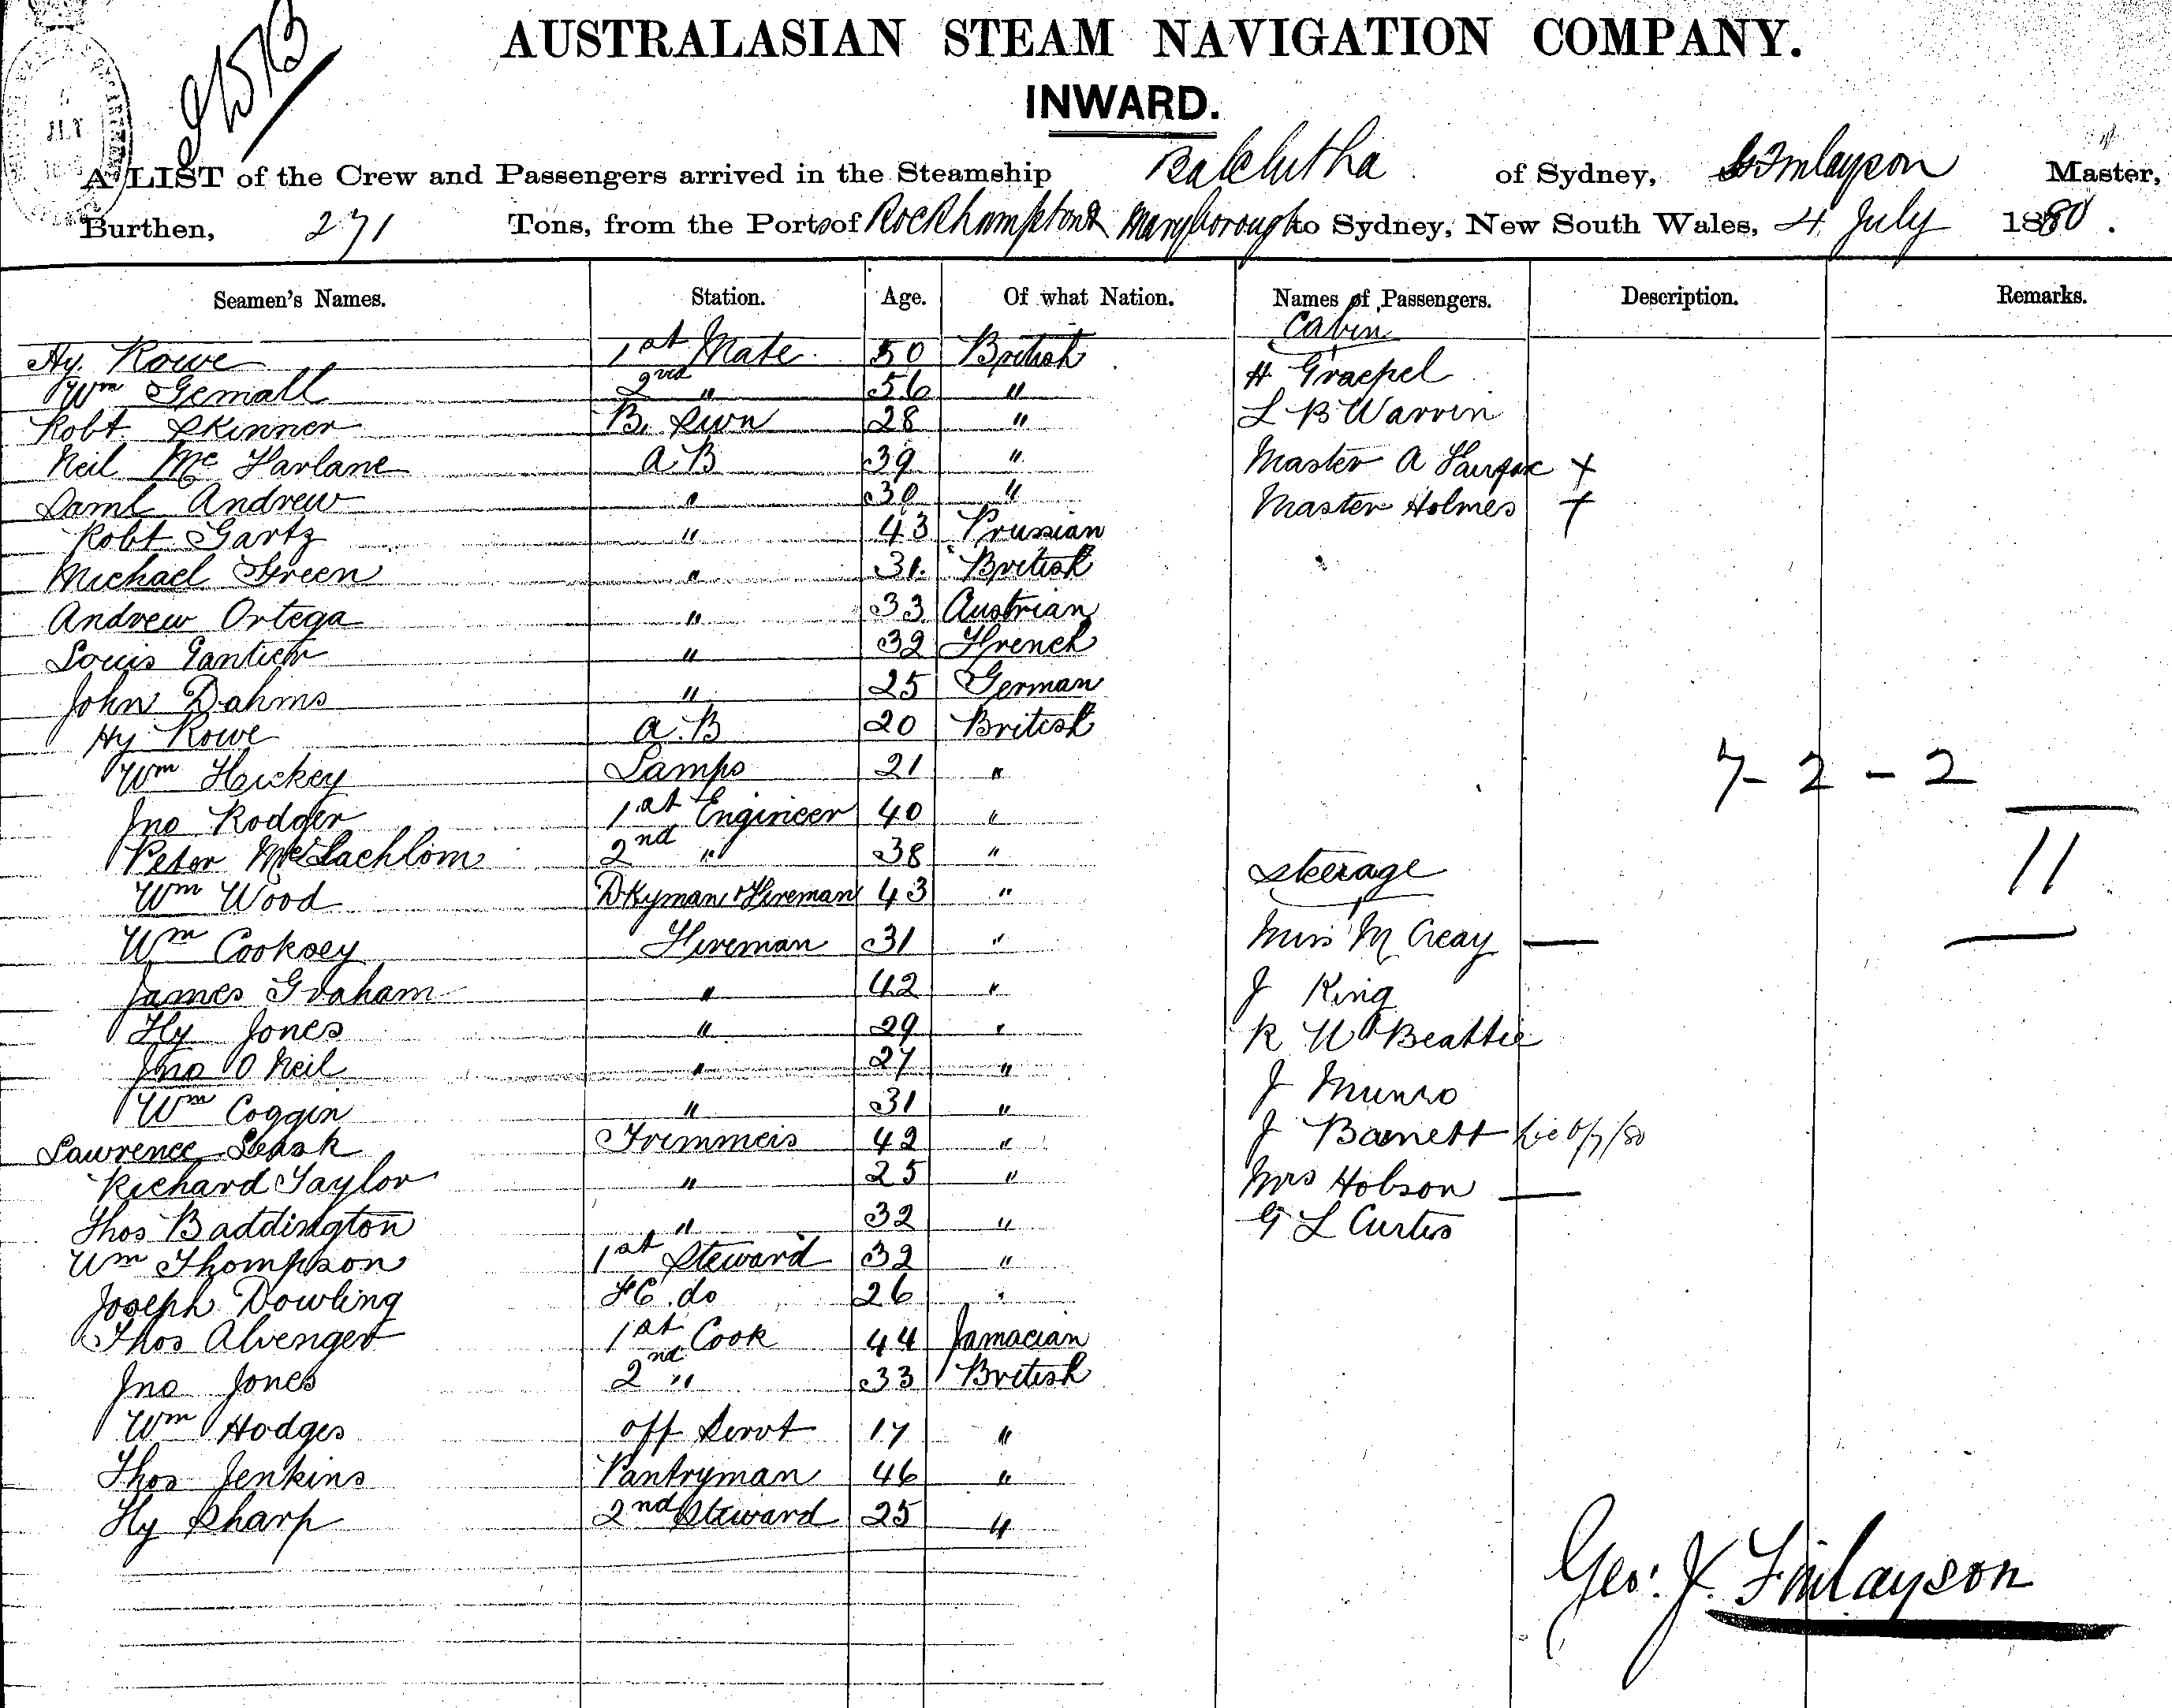 AUSTRALASIAN STEAM NAVIGATION COMPANY.
INWARD.
A LIST of the Crew and Passengers arrived in the Steamship Balclutha of Sydney, G Finlayson Master,
Burthen, 271 Tons, from the Ports of Rockhampton & Maryborough to Sydney, New South Wales, 4 July 1880.
Seamen's Names. Station. Age. Of what Nation. Names of Passengers. Description. Remarks.
Cabin
Hy. Rowe 1st Mate 50 British
H Graepel
Wm Gemall 2nd " 56 "
L B Warren
Robt Skinner B. Swn 28 "
Neil Mc Farlane A.B 39 "
Master A Fairfax +
Saml Andrew " 30 "
Master Holmes +
Robt Gartz " 43 Prussian
Michael Green " 31. British
Andrew Ortega " 33 Austrian
Louis Gantier " 32 French
John Dahms " 25 German
Hy Rowe A.B 20 British
Wm Hickey Lamps 21 "
7 - 2 - 2
Jno Rodger 1st Engineer 40 "
11
Peter McLachlom 2nd " 38 "
Steerage
Wm Wood Dkyman & Fireman 43 "
Wm Cooksey Fireman 31 "
Miss M Creay —
James Graham " 42 "
J King
Hy Jones " 29 "
R W Beattie
Jno O Neil " 27 "
J Munro
Wm Coggin " 31 "
J Barnett 6/7/80
Lawrence Leask Trimmers 42 "
Richard Taylor " 25 "
Mrs Hobson —
Thos Baddington " 32 "
G L Curtis
Wm Thompson 1st Steward 32 "
Joseph Dowling FC. do 26 "
Thos Alvenger 1st Cook 44 Jamacian
Jno Jones 2nd " 33 British
Wm Hodges Off Servt 17 "
Thos Jenkins Pantryman 46 "
Hy Sharp 2nd Steward 25 "
Geo: J. Finlayson